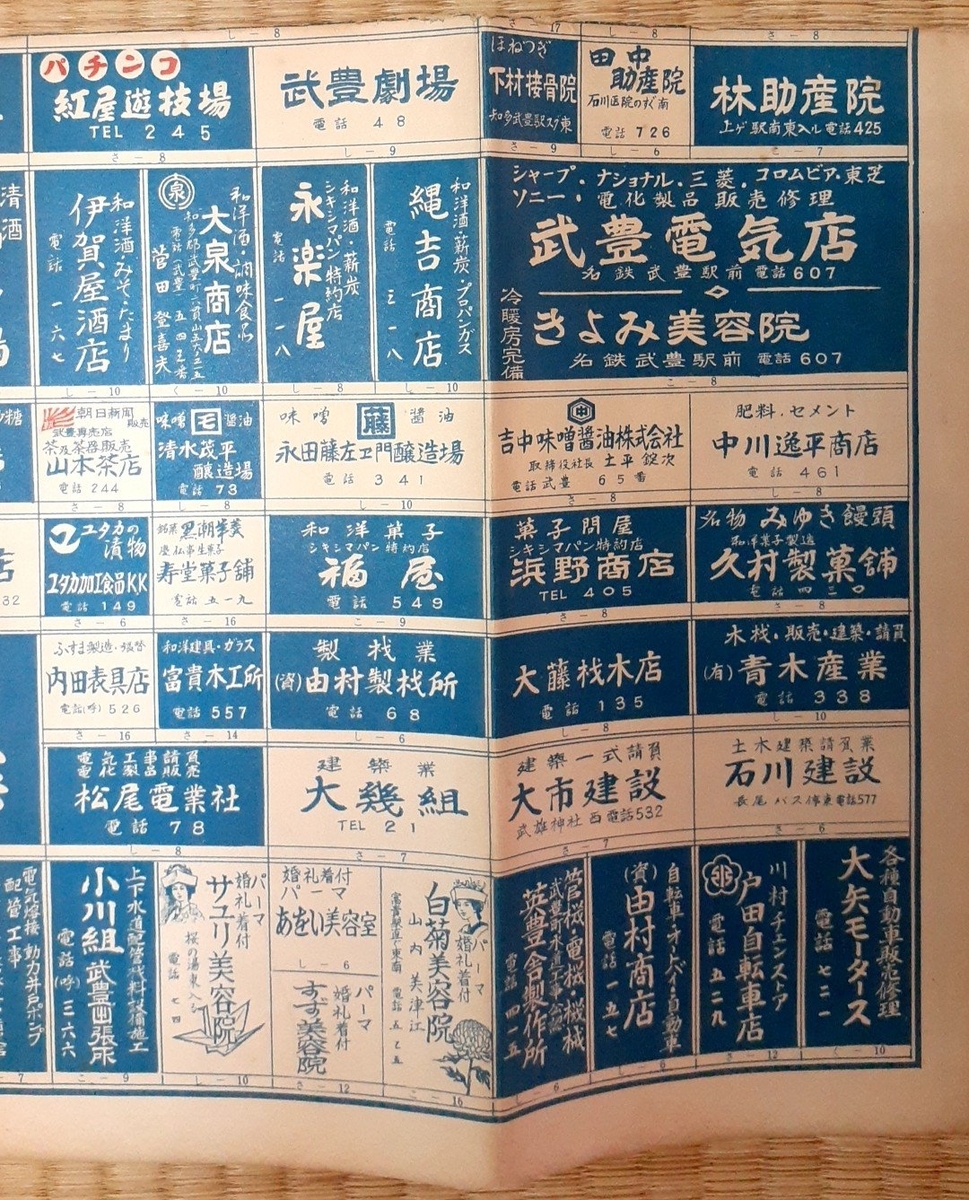 し－8
さ－17
し－8
さ－8
パチンコ
紅屋遊技場
TEL 245
武豊劇場
電話 48
ほねつぎ
下村接骨院
知多武豊駅スグ東
田中
助産院
石川医院のすぐ南
電話 726
林助産院
上ゲ駅南東入ル電話425
さ－8
し－9
さ－9
し－6
こ－7
清酒
和洋酒・みそ・たまり
伊賀屋酒店
電話 一六七
泉
和洋酒・調味食品
大泉商店
菅田登喜夫
和洋酒・薪炭
シキシマパン特約店
永楽屋
電話 一一八
和洋酒・薪炭・プロパンガス
縄吉商店
電話 三一八
シャープ．ナショナル．三菱．コロムビア．東芝
ソニー・電化製品販売修理
武豊電気店
名鉄武豊駅前 電話607
冷暖房完備
きよみ美容院
名鉄武豊駅前 電話607
し－10
く－10
し－8
し－10
こ－8
砂糖
朝日新聞
販売
武豊専売店
茶及茶器販売
山本茶店
電話 244
味噌 毛 醤油
清水茂平
醸造場
電話 73
味噌 藤 醤油
永田藤左ヱ門醸造場
電話 341
中
吉中味噌醤油株式会社
取締役社長 土平錠次
電話武豊 65番
肥料．セメント
中川逸平商店
電話 461
さ－8
し－8
し－10
さ－8
し－8
ユタカの
漬物
ユタカ加工食品KK
電話 149
銘菓 黒潮羊羹
慶弔事生菓子
寿堂菓子舗
電話 五一九
和洋菓子
シキシマパン特約店
福屋
電話 549
菓子問屋
シキシマパン特約店
浜野商店
TEL 405
名物 みゆき饅頭
和洋菓子製造
久村製菓舗
電話 四三〇
店
32
さ－6
さ－16
こ－9
さ－8
さ－8
ふすま製造・張替
内田表具店
電話(呼)526
和洋建具・ガラス
富貴木工所
電話 557
製材業
(資)由村製材所
電話 68
大藤材木店
電話 135
木材・販売・建築・請負
(有)青木産業
電話 338
さ－16
さ－14
し－6
し－8
し－10
電気工事請負
電化製品販売
松尾電業社
電話 78
建築業
大幾組
TEL 21
建築一式請負
大市建設
武雄神社西電話532
土木建築請負業
石川建設
長尾バス停東電話577
し－8
さ－7
さ－7
さ－6
電気熔接・動力井戸ポンプ
配管工事
上下水道配管材料設備施工
小川組 武豊出張所
電話(呼)三二六六
パーマ
婚礼着付
サユリ美容院
桜の湯東入ル
電話 七四
婚礼着付
パーマ
あをい美容室
し－6
パーマ
婚礼着付
すゞ美容院
パーマ
婚礼着付
白菊美容院
山内美津江
電話 五七五
管機・電機・機械
英豊舎製作所
電話 四一五
自転車・オートバイ・自動車
(資)由村商店
電話 一五七
川村チェンストア
戸田自転車店
電話 五二九
各種自動車販売修理
大矢モータース
電話 七二一
7
こ－9
し－10
さ－12
こ－16
6
し－6
さ－12
く－10